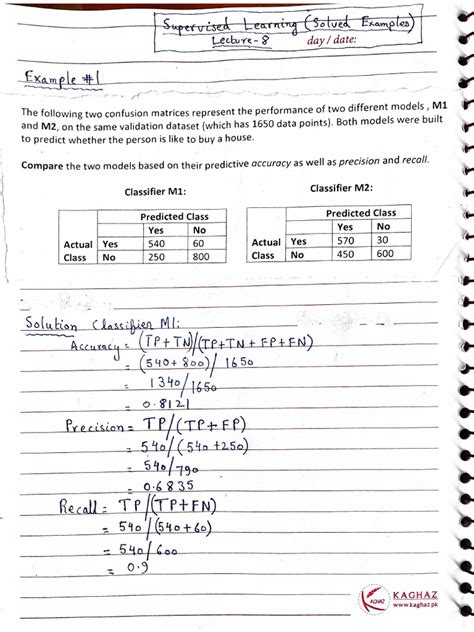 Supervised Learning (Solved Examples)
Lecture-8 day / date:
Example #1
The following two confusion matrices represent the performance of two different models , M1
and M2, on the same validation dataset (which has 1650 data points). Both models were built
to predict whether the person is like to buy a house.
Compare the two models based on their predictive accuracy as well as precision and recall.
Classifier M1:
Predicted Class
Yes No
Actual Yes 540 60
Class No 250 800
Classifier M2:
Predicted Class
Yes No
Actual Yes 570 30
Class No 450 600
Solution Classifier M1:
Accuracy = (TP+TN)/(TP+TN+FP+FN)
= (540+800)/1650
= 1340/1650
= 0.8121
Precision = TP/(TP+FP)
= 540/(540+250)
= 540/790
= 0.6835
Recall = TP/(TP+FN)
= 540/(540+60)
= 540/600
= 0.9
KAGHAZ
KAGHAZ
www.kaghaz.pk